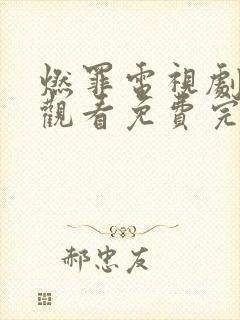 燃罪電視劇
觀看免費完
郝忠友